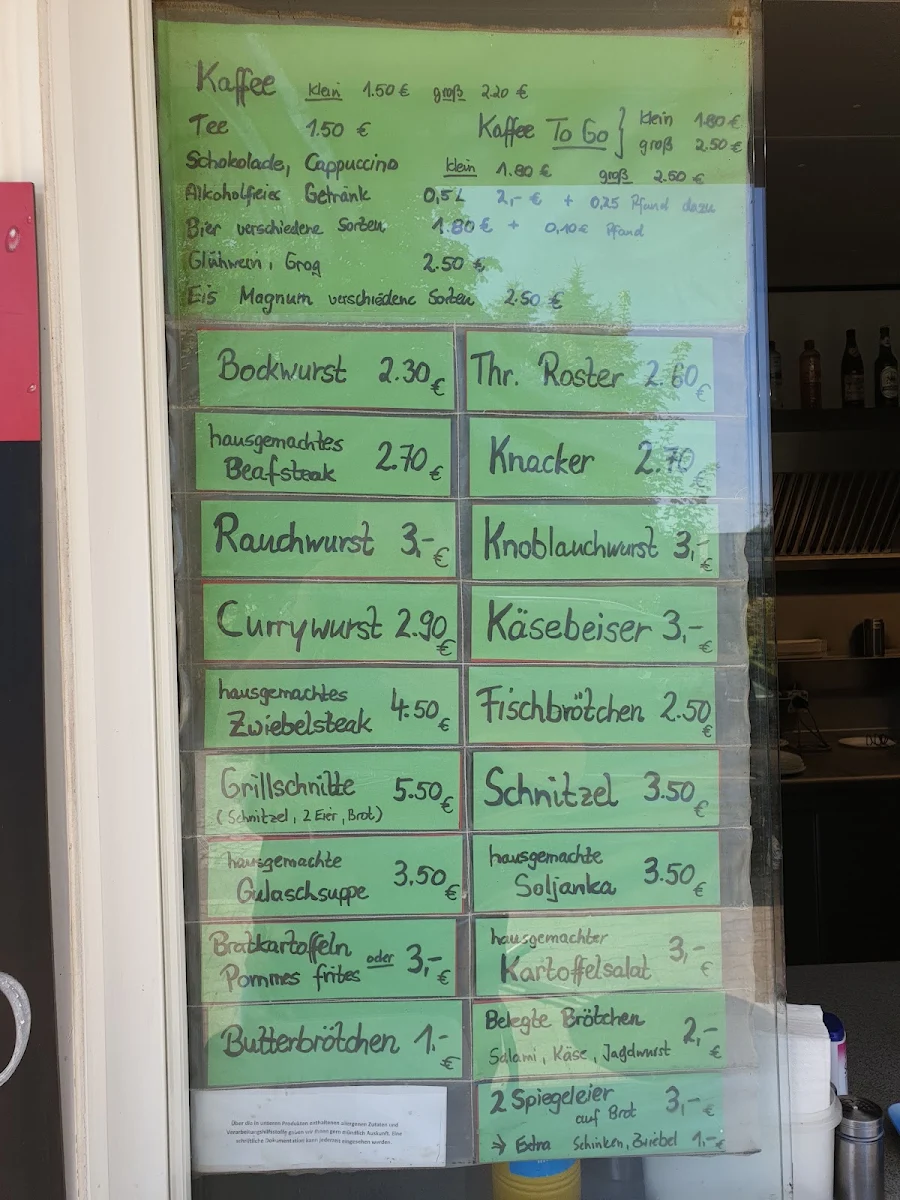 Kaffee klein 1.50 € groß 2.20 €
Tee 1.50 €
Kaffee To Go } klein 1.80 €
groß 2.50 €
Schokolade, Cappuccino klein 1.80 € groß 2.50 €
Alkoholfreies Getränk 0,5L 2,- € + 0,25 Pfand dazu
Bier verschiedene Sorten 1.80 € + 0,10 € Pfand
Glühwein, Grog 2.50 €
Eis Magnum verschiedene Sorten 2.50 €
Bockwurst 2.30 €
Thr. Roster 2.60 €
hausgemachtes
Beafsteak 2.70 €
Knacker 2.70 €
Rauchwurst 3,- €
Knoblauchwurst 3,- €
Currywurst 2.90 €
Käsebeiser 3,- €
hausgemachtes
Zwiebelsteak 4.50 €
Fischbrötchen 2.50 €
Grillschnitte 5.50 €
(Schnitzel, 2 Eier, Brot)
Schnitzel 3.50 €
hausgemachte
Gulaschsuppe 3,50 €
hausgemachte
Soljanka 3.50 €
Bratkartoffeln oder
Pommes frites 3,- €
hausgemachter
Kartoffelsalat 3,- €
Butterbrötchen 1.- €
Belegte Brötchen 2,- €
Salami, Käse, Jagdwurst
2 Spiegeleier
auf Brot 3,- €
→ Extra Schinken, Zwiebel 1,- €
Über die in unseren Produkten enthaltenen allergenen Zutaten und
Verarbeitungshilfsstoffe geben wir Ihnen gern mündlich Auskunft. Eine
schriftliche Dokumentation kann jederzeit eingesehen werden.